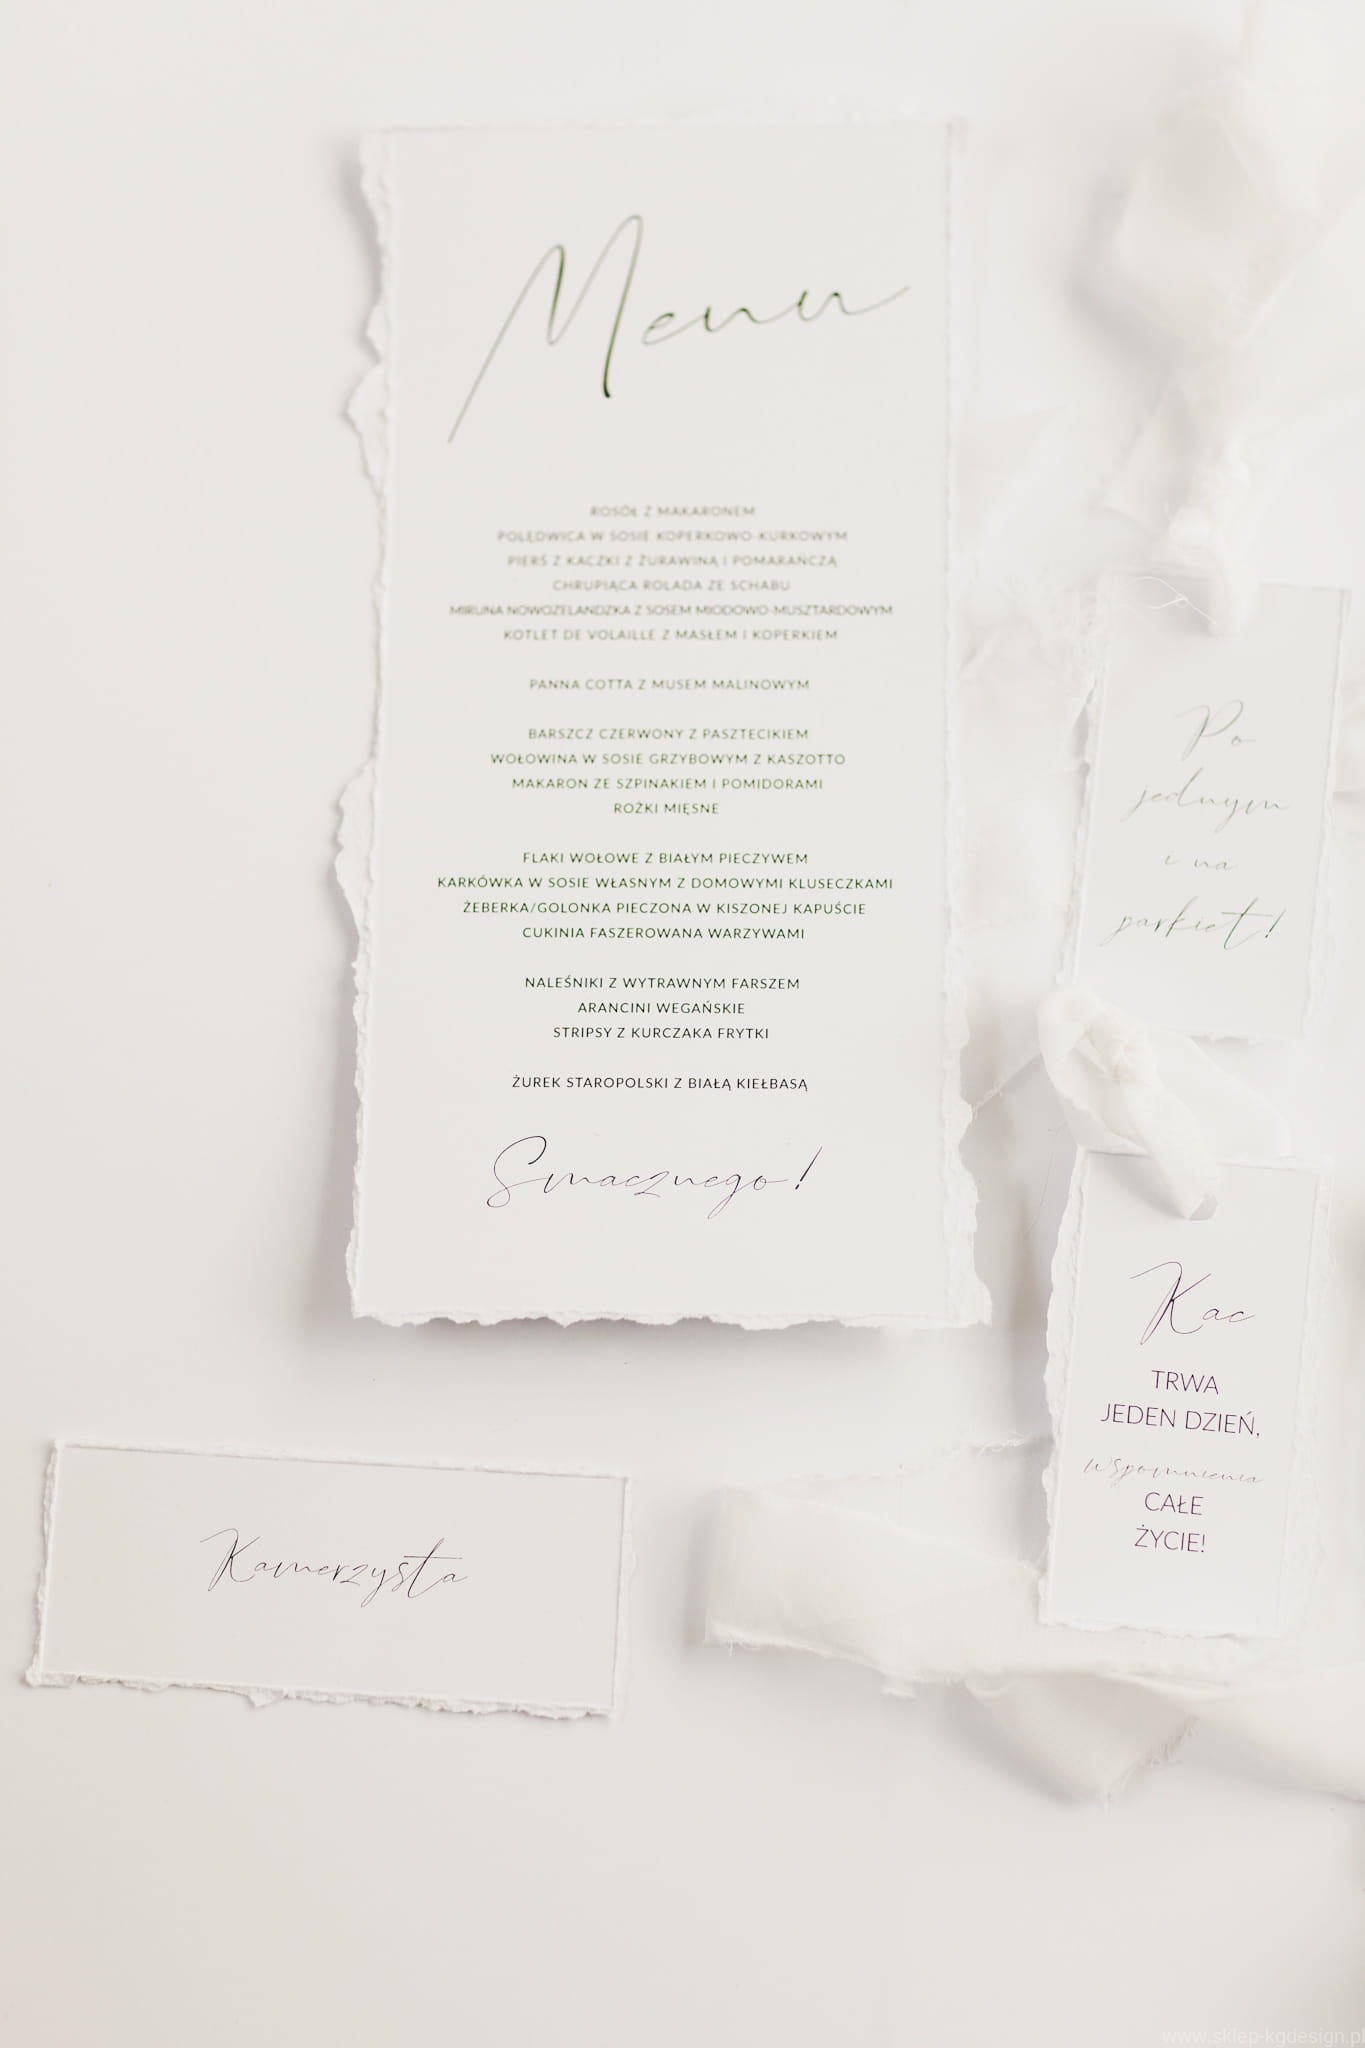 Menu
ROSÓŁ Z MAKARONEM
POLĘDWICA W SOSIE KOPERKOWO-KURKOWYM
PIERŚ Z KACZKI Z ŻURAWINĄ I POMARAŃCZĄ
CHRUPIĄCA ROLADA ZE SCHABU
MIRUNA NOWOZELANDZKA Z SOSEM MIODOWO-MUSZTARDOWYM
KOTLET DE VOLAILLE Z MASŁEM I KOPERKIEM
PANNA COTTA Z MUSEM MALINOWYM
BARSZCZ CZERWONY Z PASZTECIKIEM
WOŁOWINA W SOSIE GRZYBOWYM Z KASZOTTO
MAKARON ZE SZPINAKIEM I POMIDORAMI
ROŻKI MIĘSNE
FLAKI WOŁOWE Z BIAŁYM PIECZYWEM
KARKÓWKA W SOSIE WŁASNYM Z DOMOWYMI KLUSECZKAMI
ŻEBERKA/GOLONKA PIECZONA W KISZONEJ KAPUŚCIE
CUKINIA FASZEROWANA WARZYWAMI
NALEŚNIKI Z WYTRAWNYM FARSZEM
ARANCINI WEGAŃSKIE
STRIPSY Z KURCZAKA FRYTKI
ŻUREK STAROPOLSKI Z BIAŁĄ KIEŁBASĄ
Smacznego!
Po
jednym
i na
parkiet!
Kac
TRWA
JEDEN DZIEŃ,
wspomnienia
CAŁE
ŻYCIE!
Kamerzysta
www.sklep-kgdesign.pl